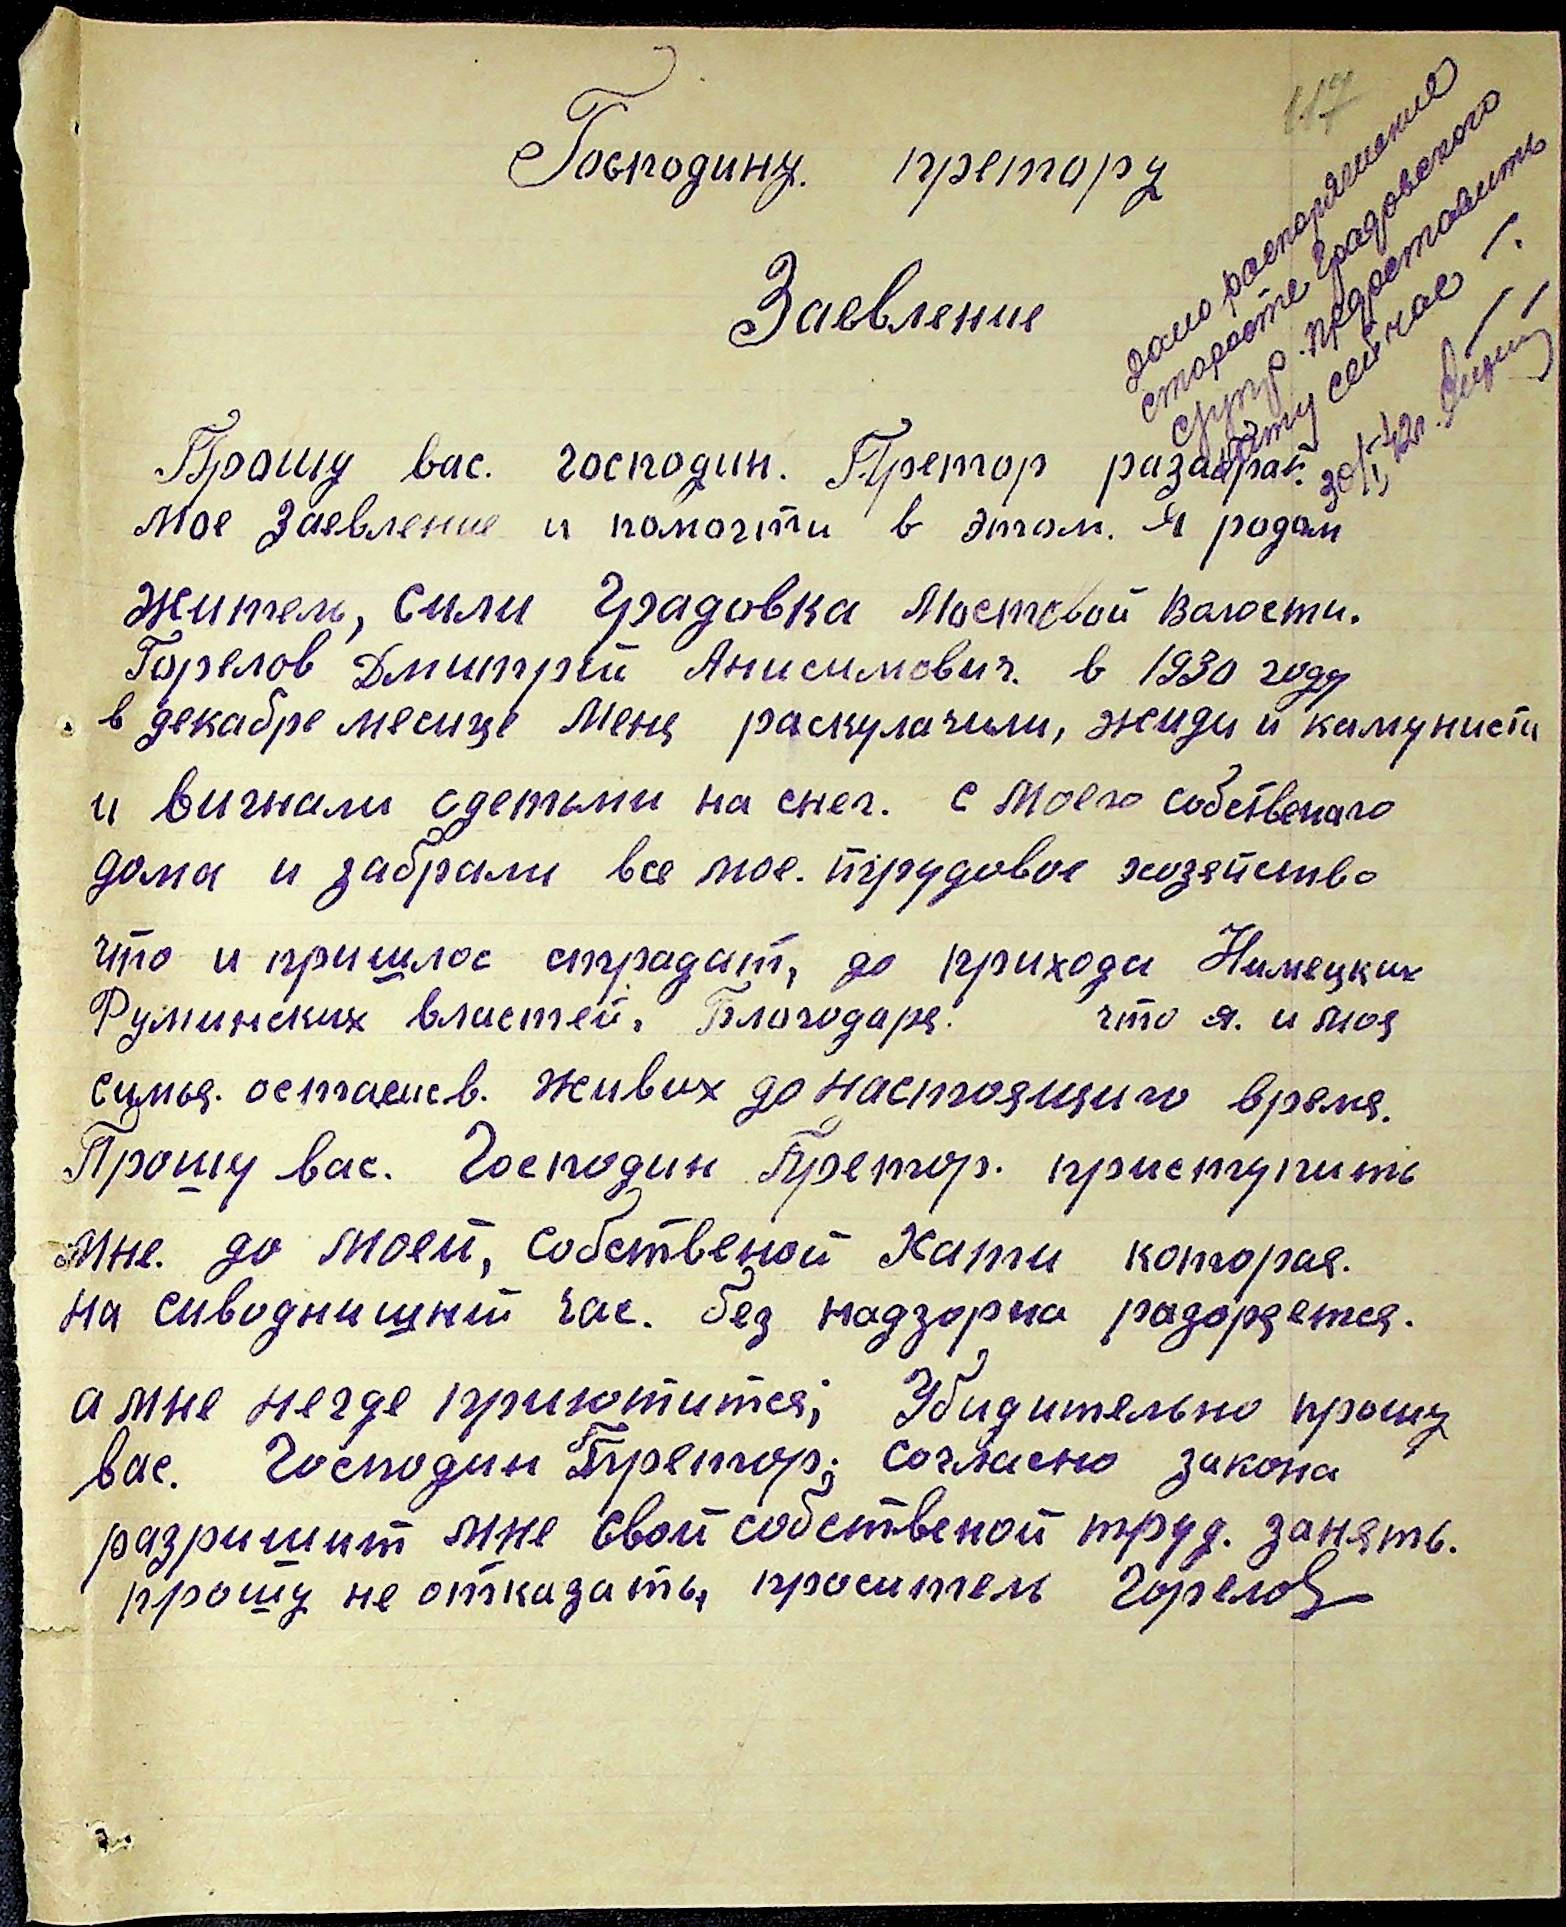 117
Господину. претору
Заевление
дано распоряжение
старосте Градовского
супр. предоставить
хату сейчас —.
30/I-42г.
Прошу вас. господин. Претор разабрат.
мое Заевление и помогти в этом. я родом
житель, Сили Градовка Мостовой Волости.
Горелов Дмитрий Анисимович. в 1930 году
в декабре месице Меня раскулачили, жиди и камунисти
и вигнали одетыми на снег. с Моего собственаго
дома и забрали все мое. трудовое хозяйство
что и пришлос страдат, до прихода Нимецких
Руминских властей. Благодаря. что я. и моя
симья. остаемсв. живих до настоящиго время.
Прошу вас. Господин Претор. приступить
мне. до моей, собственой Хати которая.
на сиводнишний час. без надзорна разоряется.
а мне негде приютится; Убидительно прошу
вас. Господин Претор; согласно закона
разришит мне свой собственой труд. занять.
прошу не отказать, проситель Горелов